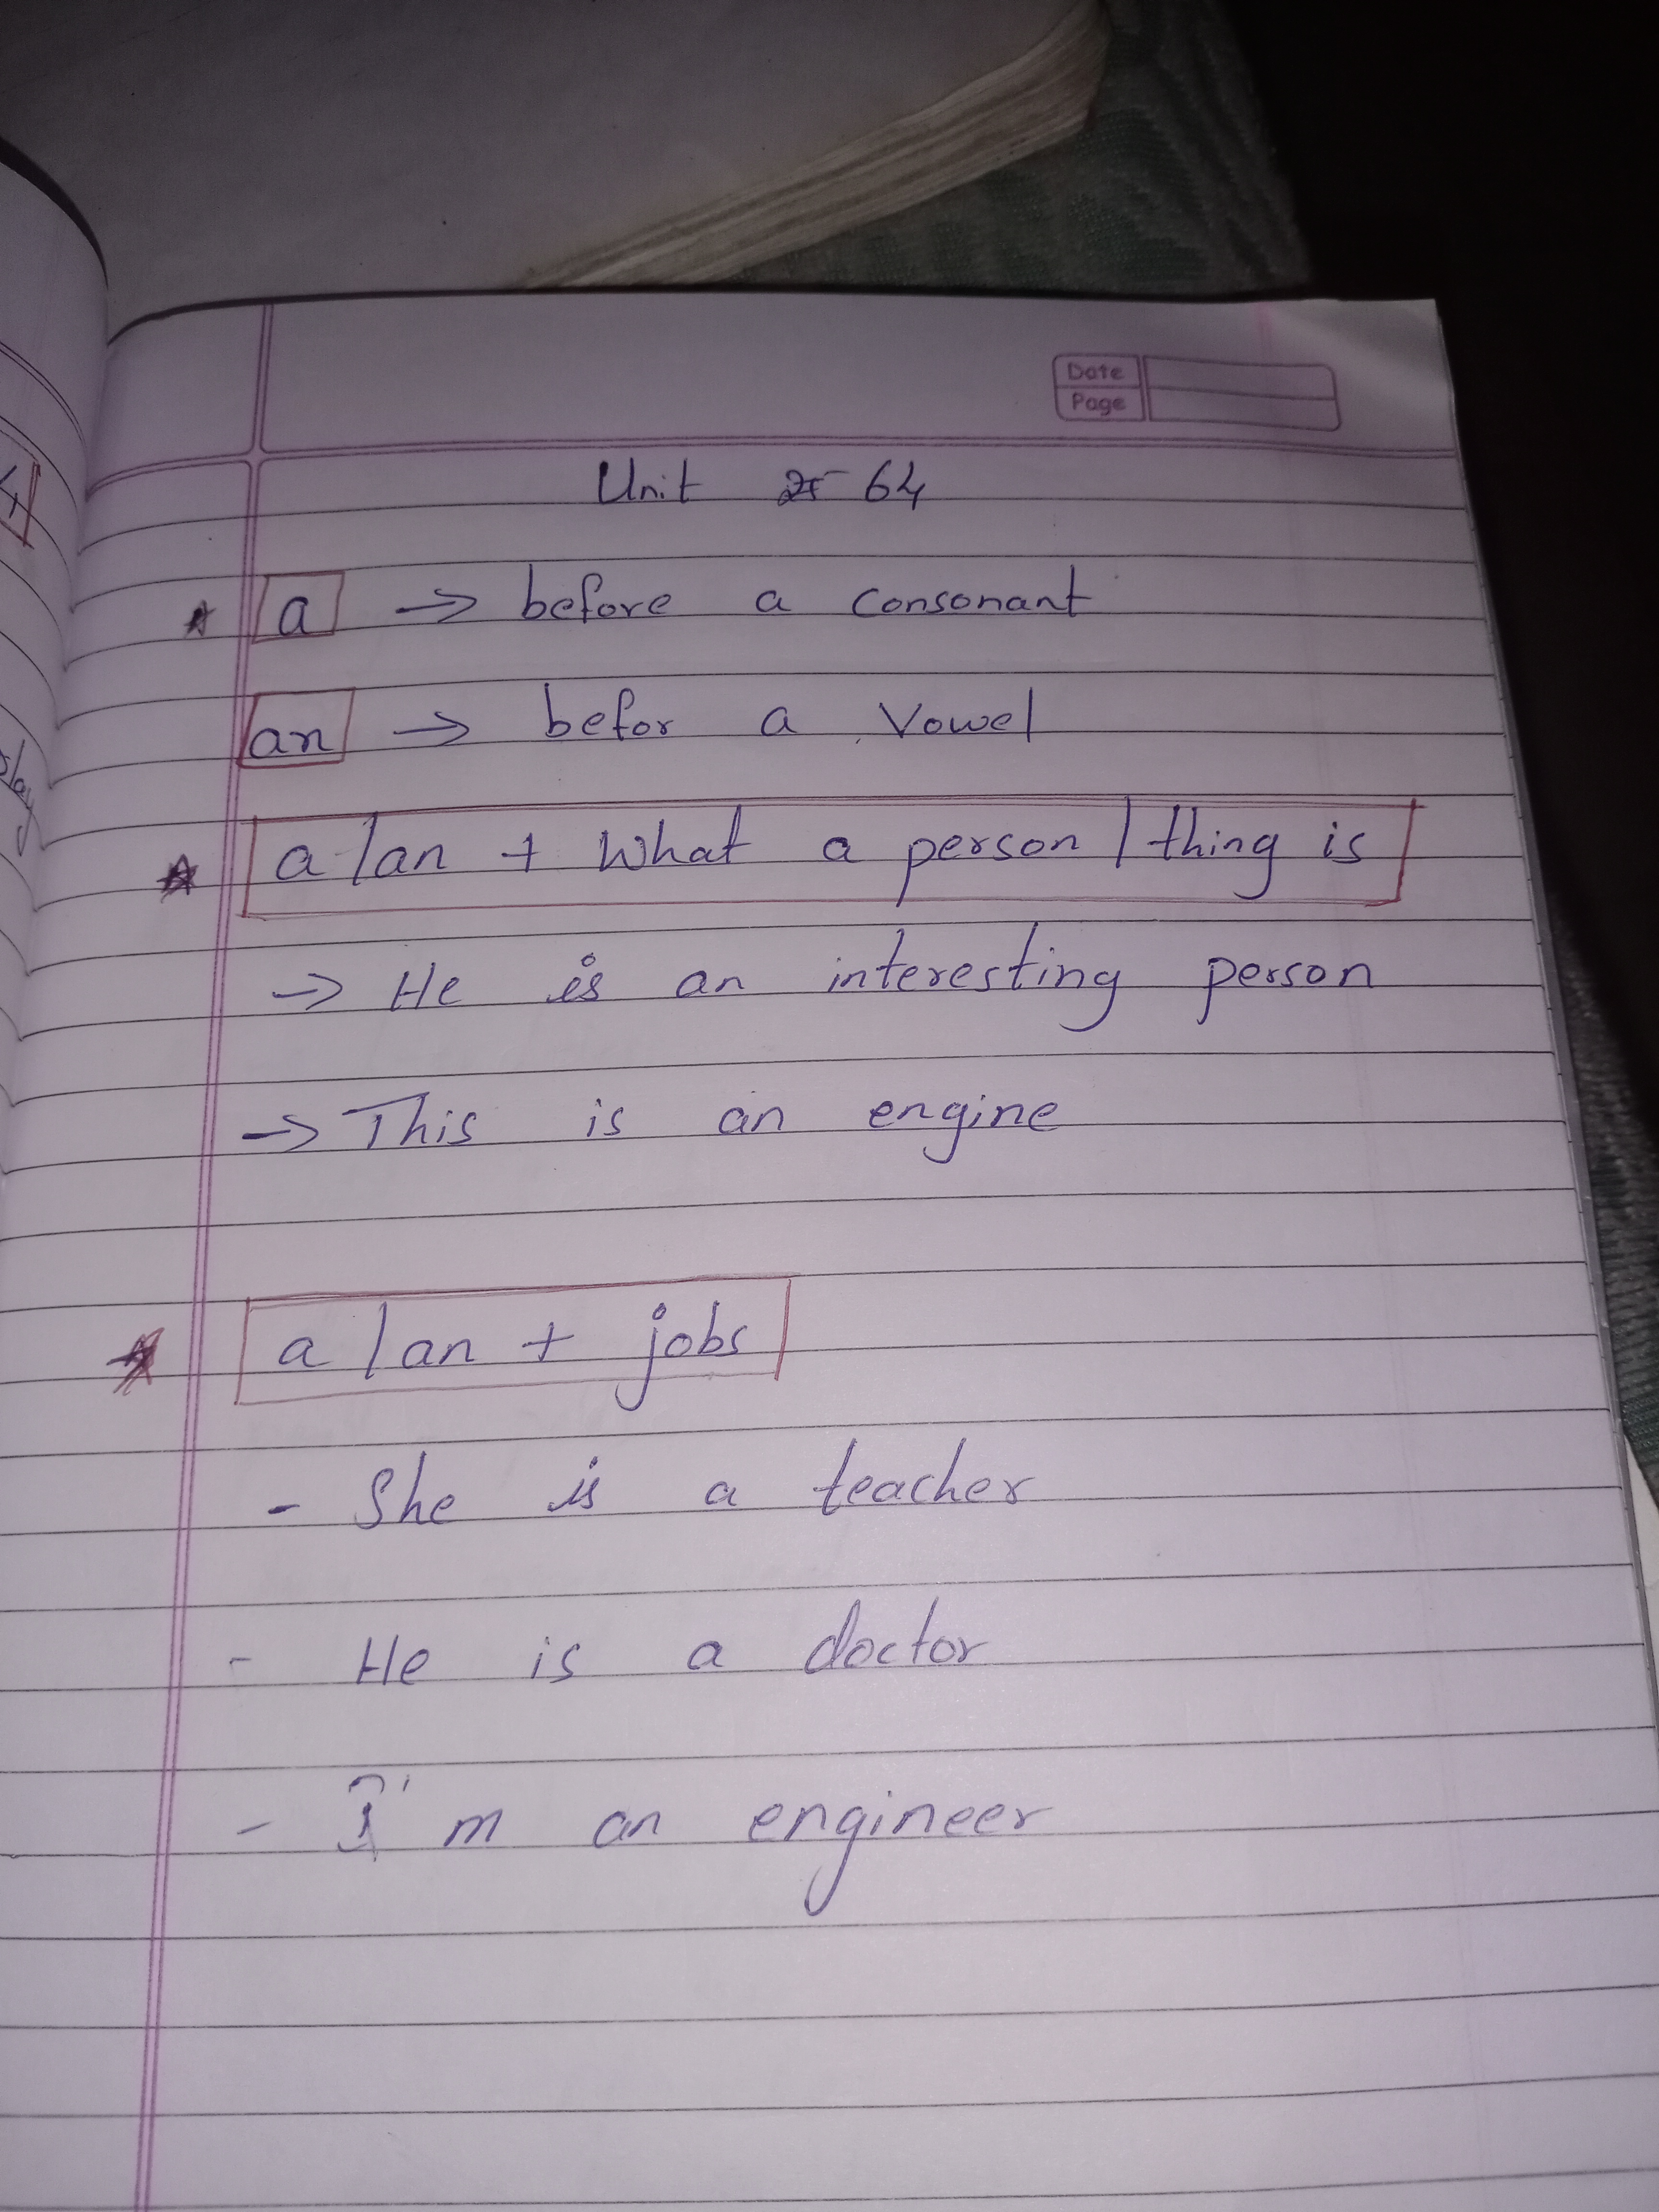 Date
Page
Unit 64
a → before a consonant
an → befor a vowel
a / an + What a person / thing is
→ He is an interesting person
→ This is an engine
a / an + jobs
- She is a teacher
- He is a doctor
- I'm an engineer